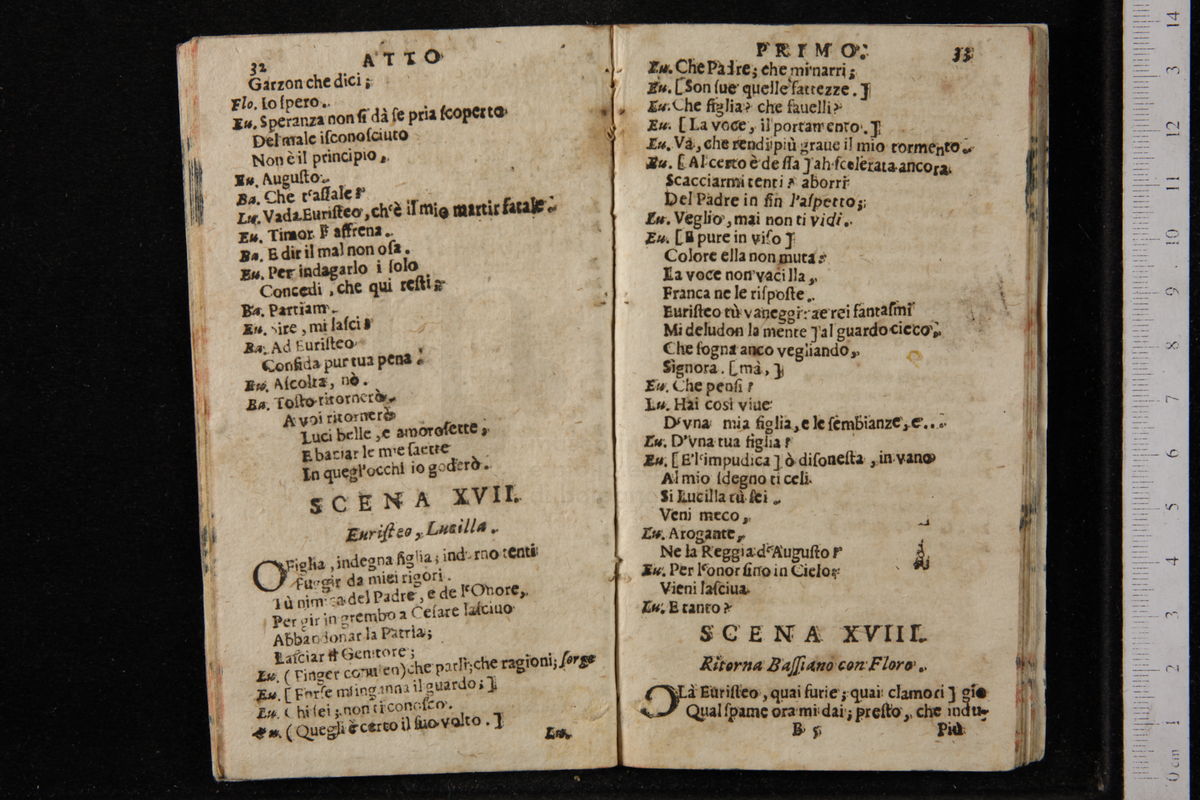 32 ATTO
Garzon che dici;
Flo. Io spero.
Eu. Speranza non si dà se pria scoperto
Del male isconosciuto
Non è il principio.
Eu. Augusto.
Ba. Che t'assale?
Lu. Vada Euristeo, ch'è il mio martir fatale.
Eu. Timor l' affrena.
Ba. E dir il mal non osa.
Eu. Per indagarlo i solo
Concedi, che qui resti;
Ba. Partiam.
Eu. Sire, mi lasci?
Ba. Ad Euristeo
Confida pur tua pena.
Eu. Ascolta, nò.
Ba. Tosto ritornerò.
A voi ritornerò
Luci belle, e amorosette,
E baciar le mie saette
In quegl'occhi io goderò.
SCENA XVII.
Euristeo, Lucilla.
O Figlia, indegna figlia; indarno tenti
Fuggir da miei rigori.
Tù nimica del Padre, e de l'Onore,
Per gir in grembo a Cesare lascivo
Abbandonar la Patria;
Lasciar il Genitore;
Lu. (Finger convien) che parli; che ragioni; sorge
Eu. [Forse m'inganna il guardo;]
Lu. Chi sei; non ti conosco.
Eu. (Quegli è certo il suo volto.]
Lu.
PRIMO. 33
Lu. Che Padre; che mi narri;
Eu. [Son sue quelle fattezze.]
Eu. Che figlia? che favelli?
Eu. [La voce, il portamento.]
Lu. Và, che rendi più grave il mio tormento.
Eu. [Al certo è dessa] ah scelerata ancora
Scacciarmi tenti? aborri
Del Padre in fin l'aspetto;
Lu. Veglio, mai non ti vidi.
Eu. [E pure in viso]
Colore ella non muta?
La voce non vacilla,
Franca ne le risposte.
Euristeo tù vaneggi: aerei fantasmi
Mi deludon la mente] al guardo cieco,
Che sogna anco vegliando,
Signora. [mà,]
Eu. Che pensi?
Lu. Hai così vive
D'vna mia figlia, e le sembianze, e...
Lu. D'vna tua figlia?
Eu. [E l'impudica] ò disonesta, in vano
Al mio sdegno ti celi.
Si Lucilla tù sei.
Veni meco,
Lu. Arogante,
Ne la Reggia d'Augusto?
Eu. Per l'onor sino in Cielo;
Vieni lasciva.
Lu. E tanto?
SCENA XVIII.
Ritorna Bassiano con Floro.
OLà Euristeo, quai furie; quai clamori] giò
Qual speme ora mi dai; presto, che indu-
B 5 Più